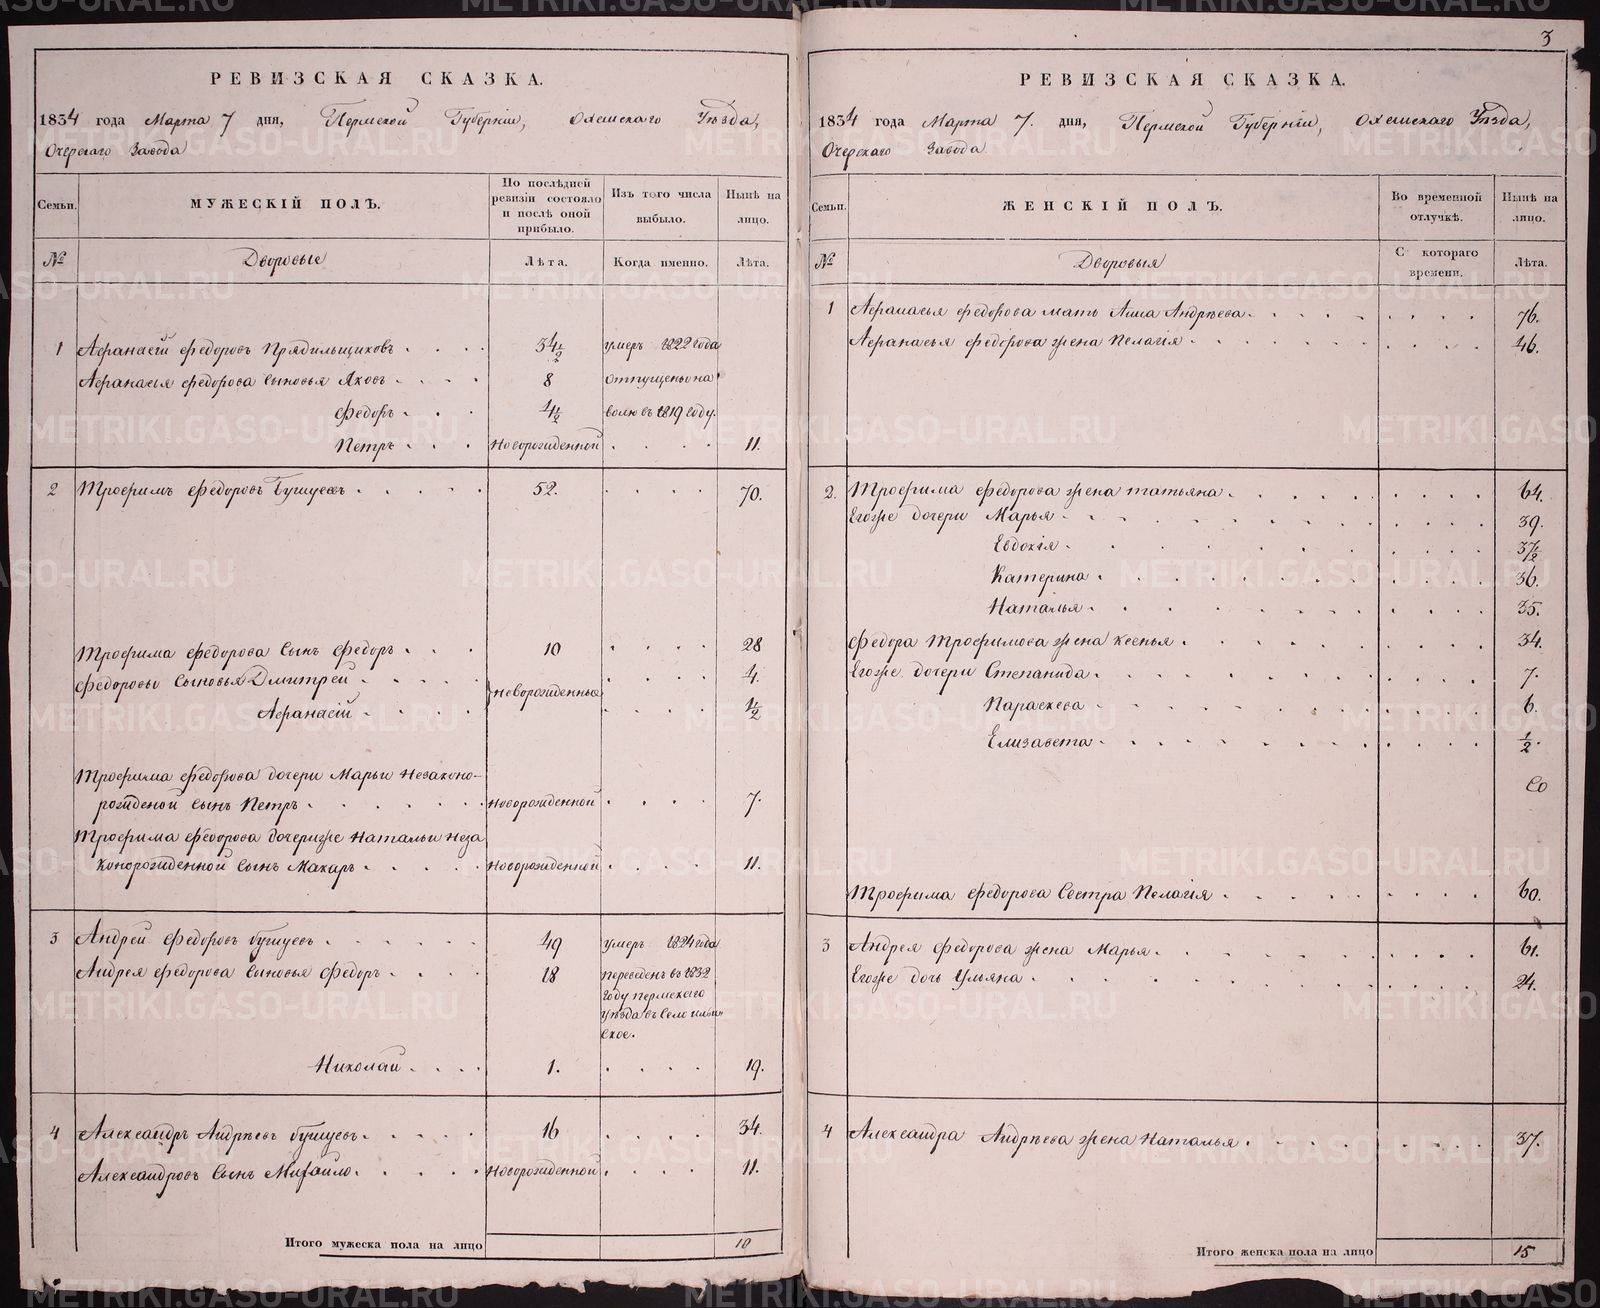 РЕВИЗСКАЯ СКАЗКА.
1834 года Марта 7 дня, Пермской Губерніи, Оханскаго Уѣзда,
Очерскаго Завода
Семьи.
МУЖЕСКІЙ ПОЛЪ.
По послѣдней ревизіи состояло и послѣ оной прибыло.
Изъ того числа выбыло.
Нынѣ на лицо.
№
Дворовые
Лѣта.
Когда именно.
Лѣта.
1 Афанасій Федоровъ Прядильщиковъ 34 1/2 умеръ 1822 года
Афанасья Федорова сыновья Яковъ 8 отпущены на
Федоръ 4 1/2 волю въ 1819 году.
Петръ Новорожденной 11.
2 Трофимъ Федоровъ Бушуевъ 52. 70.
Трофима Федорова сынъ Федоръ 10 28
Федоровы сыновья Дмитрей 4.
новорожденные
Афанасій 1/2
Трофима Федорова дочери Марьи незаконо-
рожденой сынъ Петръ Новорожденной 7.
Трофима Федорова дочериже Натальи неза
конорожденной сынъ Макаръ Новорожденной 11.
3 Андрей Федоровъ Бушуевъ 49 умеръ 1824 года
Андрея Федорова сыновья Федоръ 18 переведенъ въ 1832
году Пермскаго
уѣзда въ село Ильин
ское.
Николай 1. 19.
4 Александръ Андрѣевъ Бушуевъ 16 34.
Александровъ сынъ Михайло Новорожденной 11.
Итого мужеска пола на лицо 10
3
РЕВИЗСКАЯ СКАЗКА.
1834 года Марта 7. дня, Пермской Губерніи, Оханскаго Уѣзда,
Очерскаго Завода
Семьи.
ЖЕНСКІЙ ПОЛЪ.
Во временной отлучкѣ.
Нынѣ на лицо.
№
Дворовыя
С котораго времени.
Лѣта.
1 Афанасья Федорова мать Анна Андрѣева 76.
Афанасья Федорова жена Пелагія 46.
2. Трофима Федорова жена Татьяна 64.
Егоже дочери Марья 39.
Евдокія 37 1/2
Катерина 36.
Наталья 35.
Федора Трофимова жена Ксенья 34.
Егоже дочери Степанида 7.
Параскева 6.
Елизавета 1/2.
Трофима Федорова сестра Пелагія 60.
3 Андрея Федорова жена Марья 61.
Егоже дочь Ульяна 24.
4 Александра Андрѣева жена Наталья 37.
Итого женска пола на лицо 15
METRIKI.GASO-URAL.RU